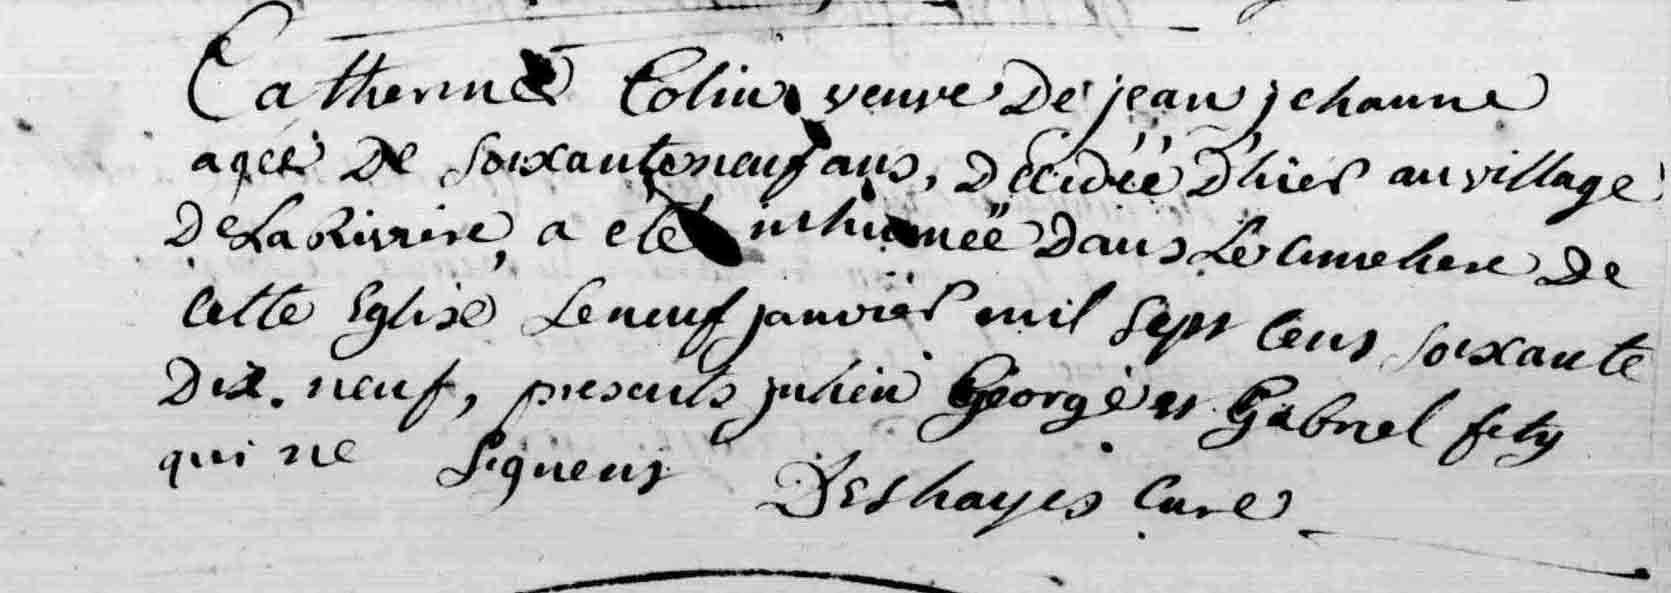 Catherine Colin veuve De jean jehanne
agée De soixante neuf ans, Décédée D'hier au village
De La Riviere, a eté inhumée Dans Le cimetiere De
cette Eglise Le neuf janvier mil sept cens soixante
Dix. neuf, presents julien George et Gabriel
qui ne signent Deshayes Curé